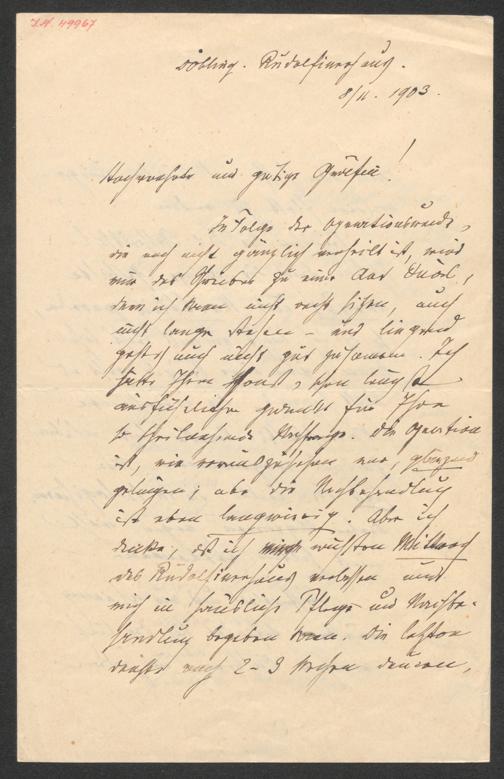 I.N. 49967
Döbling. Rudolfinerhaus.
8/II. 1903.
Hochverehrte und gütige Gräfin!
In Folge der Operationswunde,
die noch nicht gänzlich verheilt ist, wird
mir das Schreiben zu einer Art Qual,
denn ich kann nicht recht sitzen, auch
nicht lange stehen – und liegend
geht's auch nicht gut zusammen. Ich
hätte Ihnen sonst schon längst
ausführlicher gedankt für Ihre
so theilnehmende Nachfrage. Die Operation
ist, wie vorauszusehen war, glänzend
gelungen; aber die Nachbehandlung
ist eben langwierig. Aber ich
denke, daß ich nächsten Mittwoch
das Rudolfinerhaus verlassen und
mich in häusliche Pflege und Nachbe-
handlung begeben kann. Die letztere
dürfte noch 2–3 Wochen dauern,